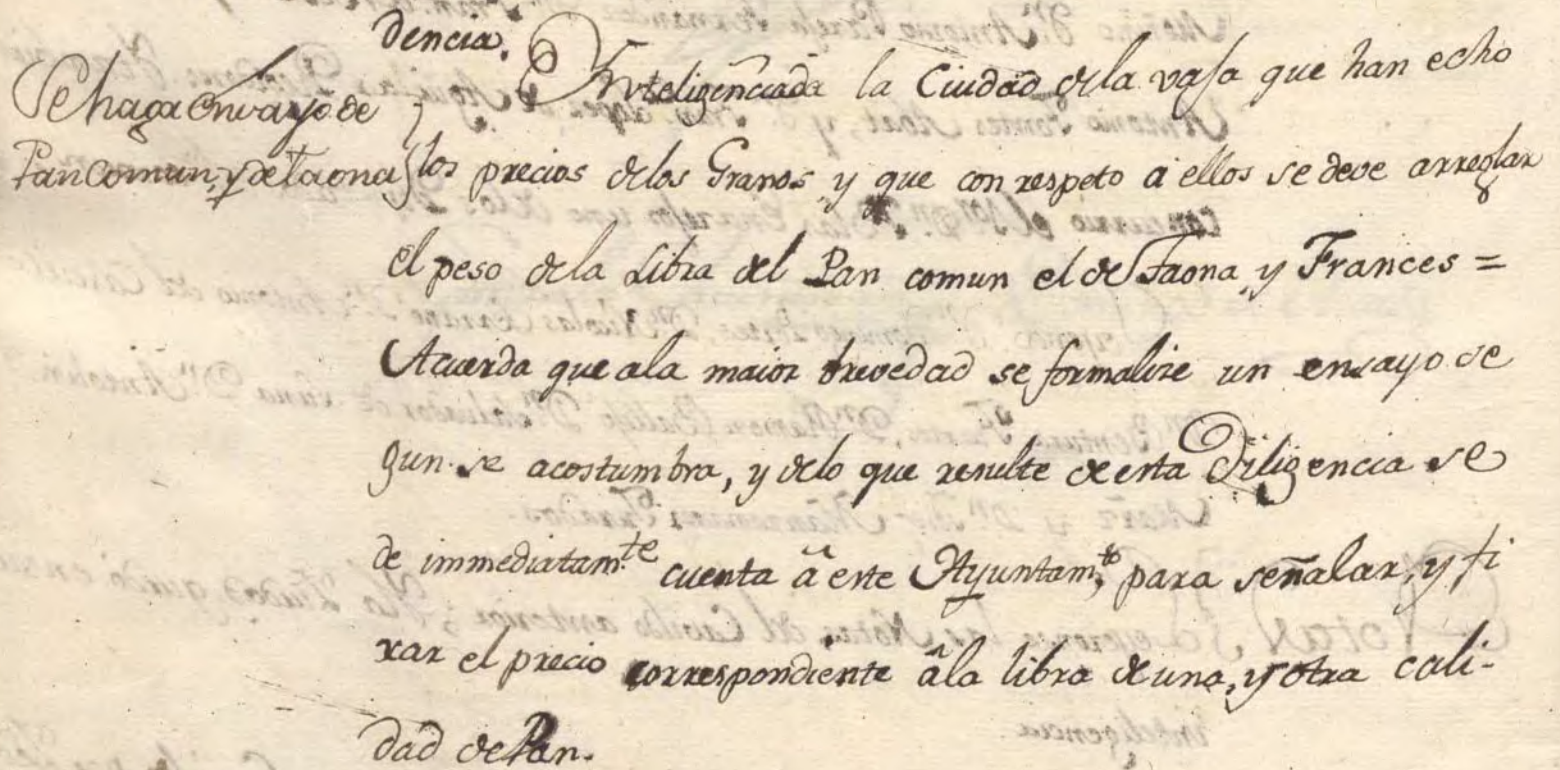 dencia.
Se haga ensayo de
Pan comun, y de Taona
Inteligenciada la Ciudad de la vaja que han echo
los precios de los Granos y que con respeto a ellos se deve arreglar
el peso de la Libra del Pan comun el de Taona, y Frances =
Acuerda que a la maior brevedad se formalize un ensayo se
gun se acostumbra, y de lo que resulte de esta Diligencia se
de immediatam.te cuenta â este Ayuntam.to para señalar, y fi
xar el precio correspondiente â la libra de una, y otra cali-
dad de Pan.